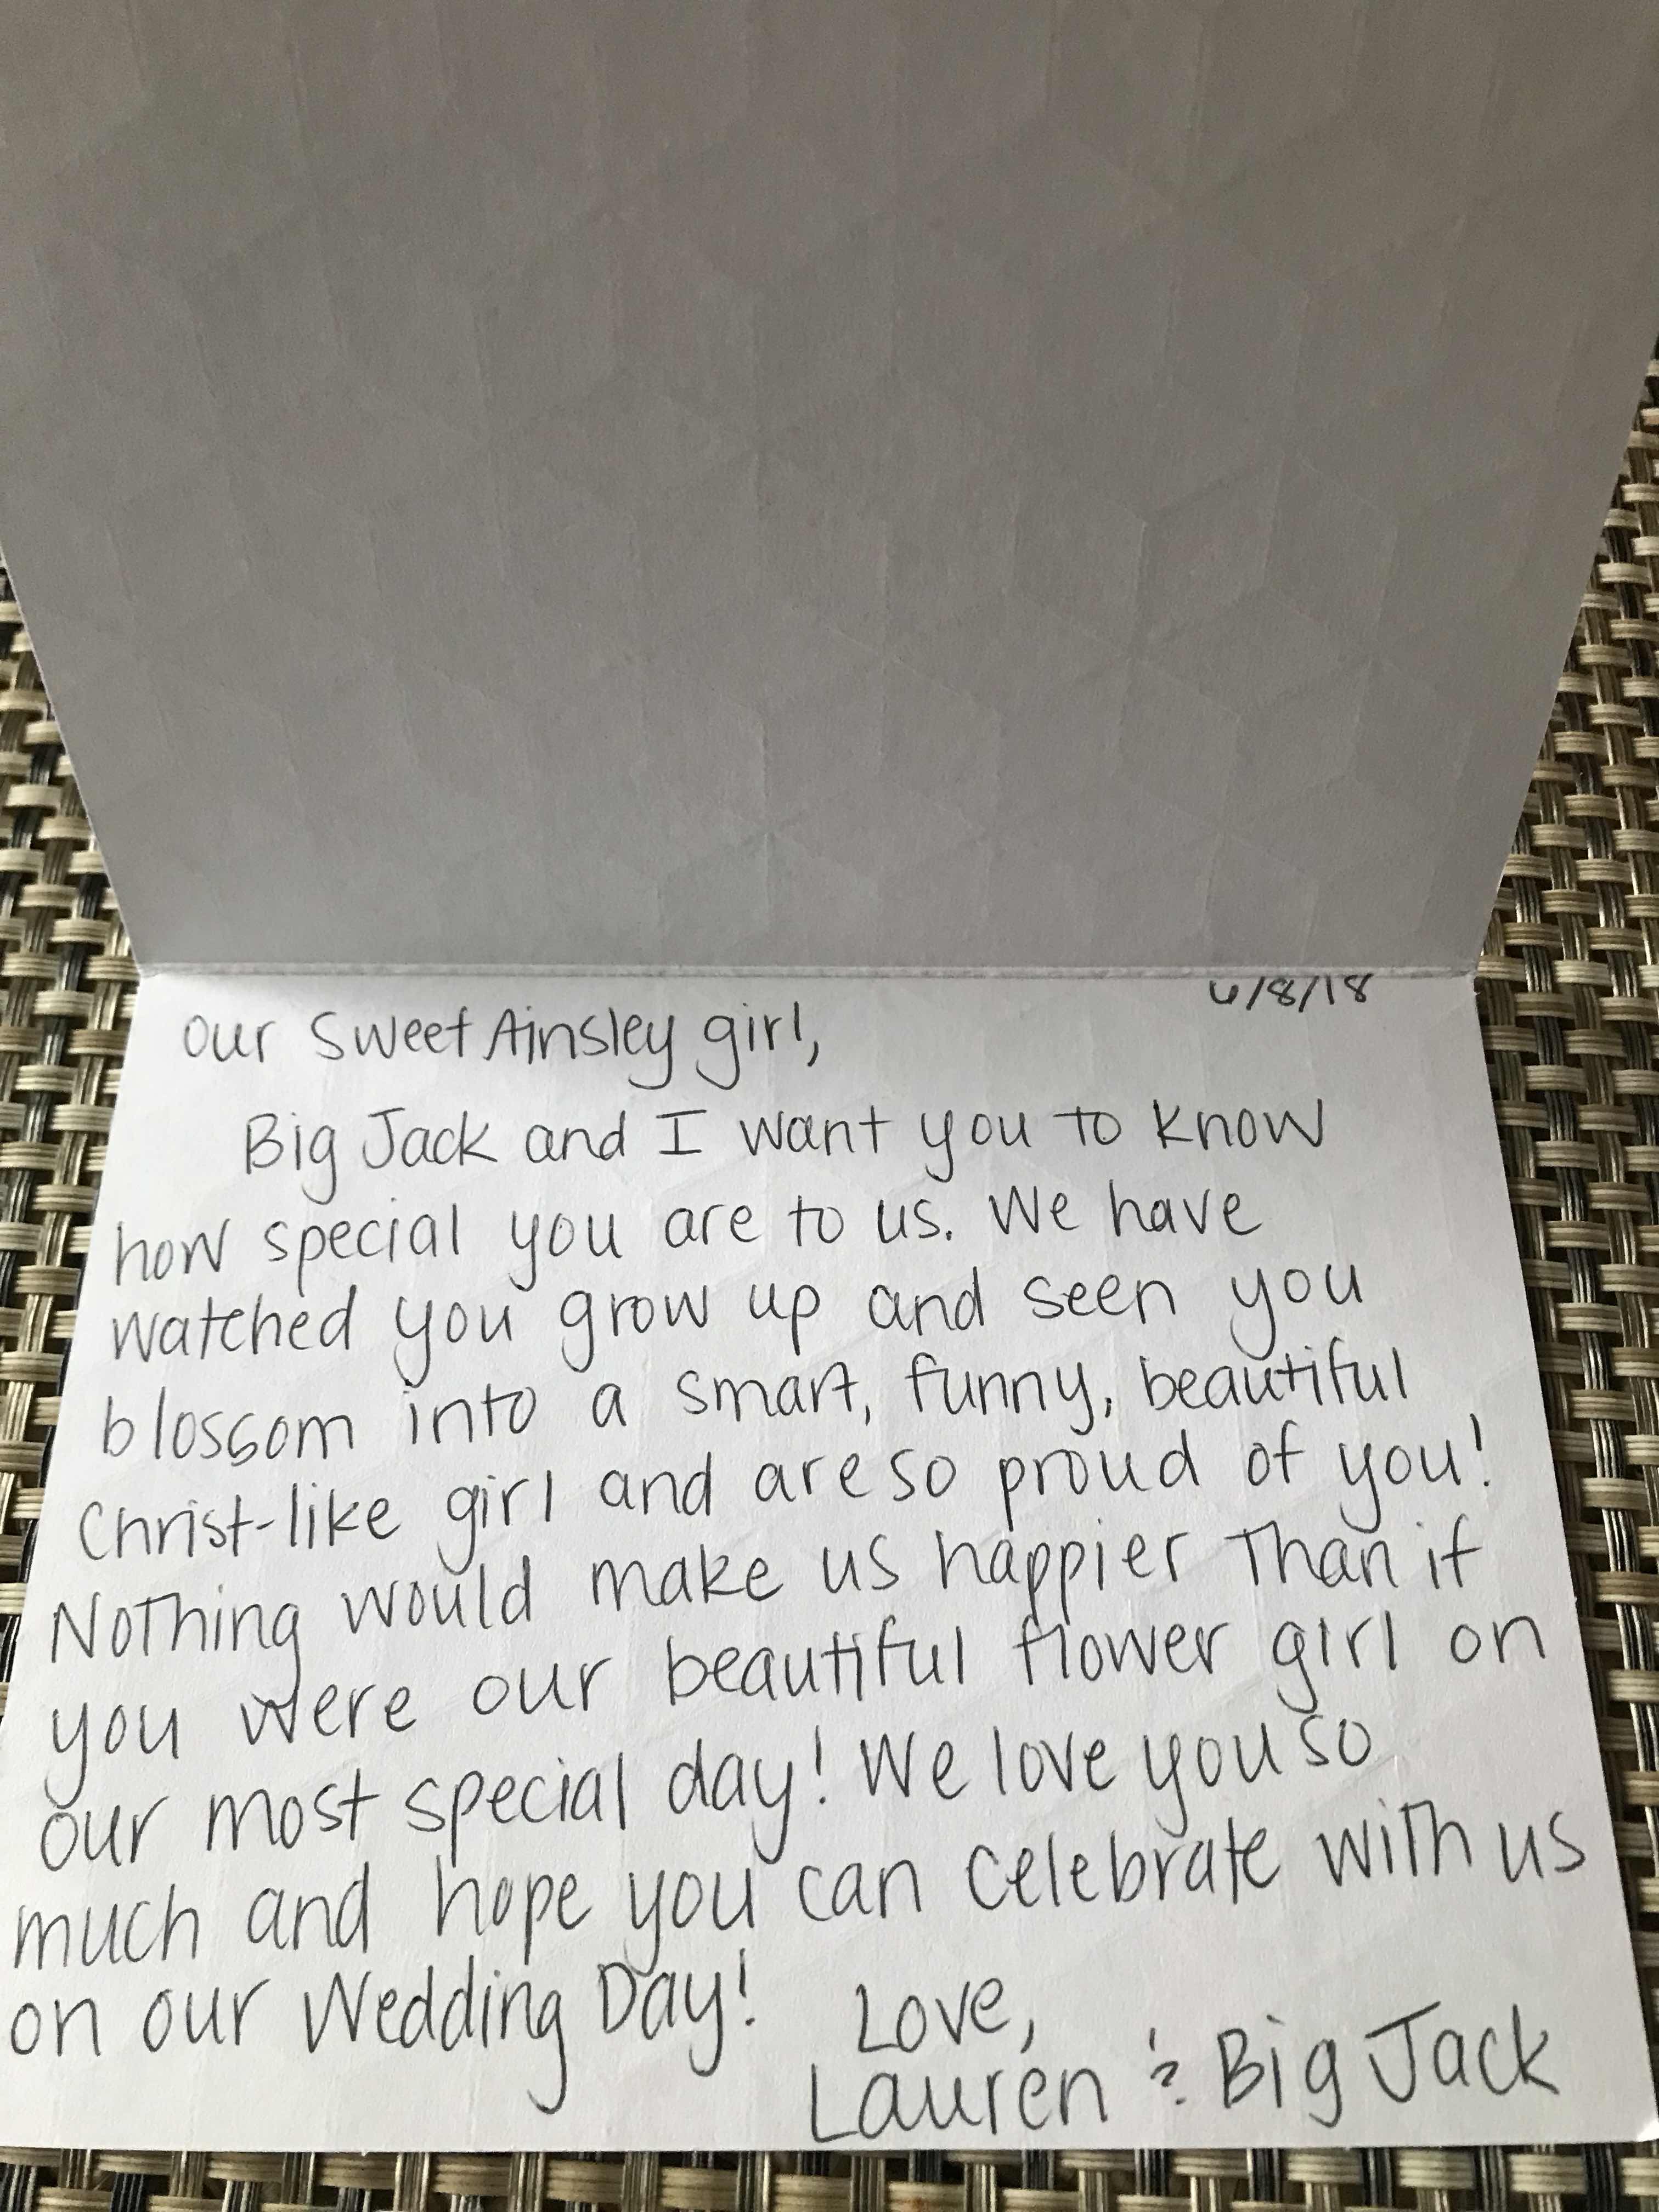 6/8/18
our Sweet Ainsley girl,
Big Jack and I want you to know
how special you are to us. We have
watched you grow up and seen you
blossom into a smart, funny, beautiful
Christ-like girl and are so proud of you!
Nothing would make us happier Than if
you were our beautiful flower girl on
our most special day! We love you so
much and hope you can celebrate with us
on our Wedding Day!
Love,
Lauren & Big Jack